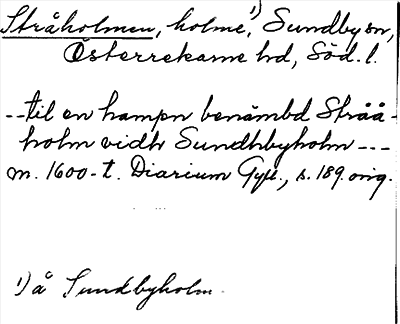 Stråholmen, holme,¹) Sundby sn,
Österrekarne hd, Söd. l.
--til en hampn benämbd Stråå-
holm vidh Sundhbyholm ---
m. 1600-t. Diarium Gyll., s. 189. orig.
¹) å Sundbyholm.